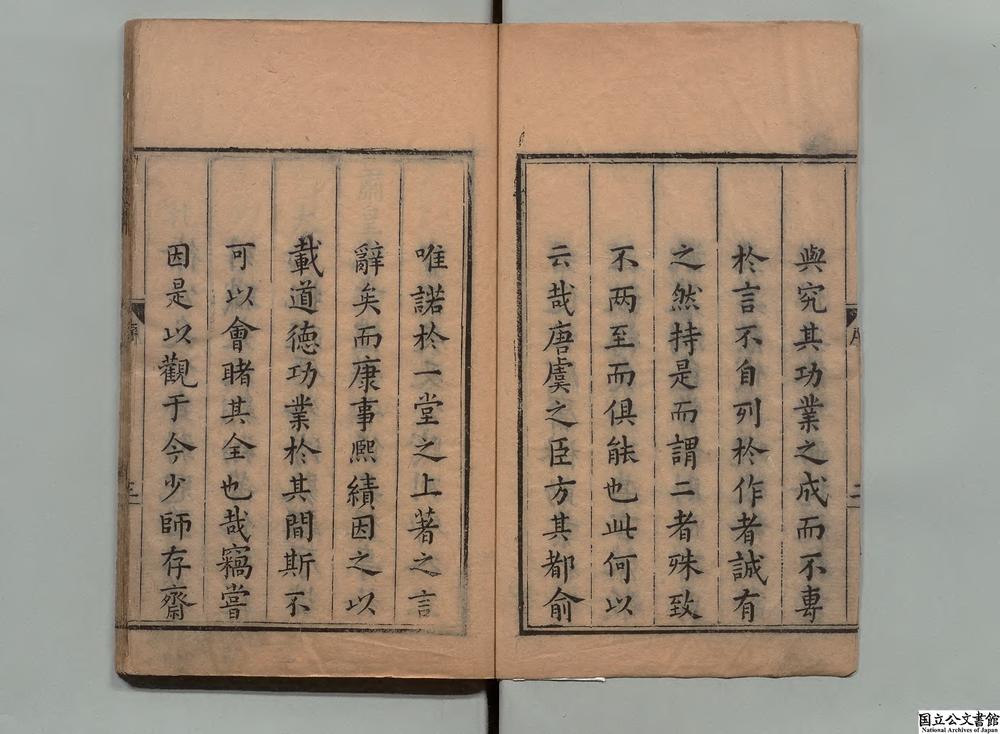 與究其功業之成而不專
扵言不自列扵作者誠有
之然持是而謂二者殊致
不两至而俱能也此何以
云哉唐虞之臣方其都俞
序
二
唯諾扵一堂之上著之言
辭矣而康事熙績因之以
載道德功業扵其間斯不
可以會睹其全也哉竊嘗
因是以觀于今少師存齋
序
三
国立公文書館
National Archives of Japan